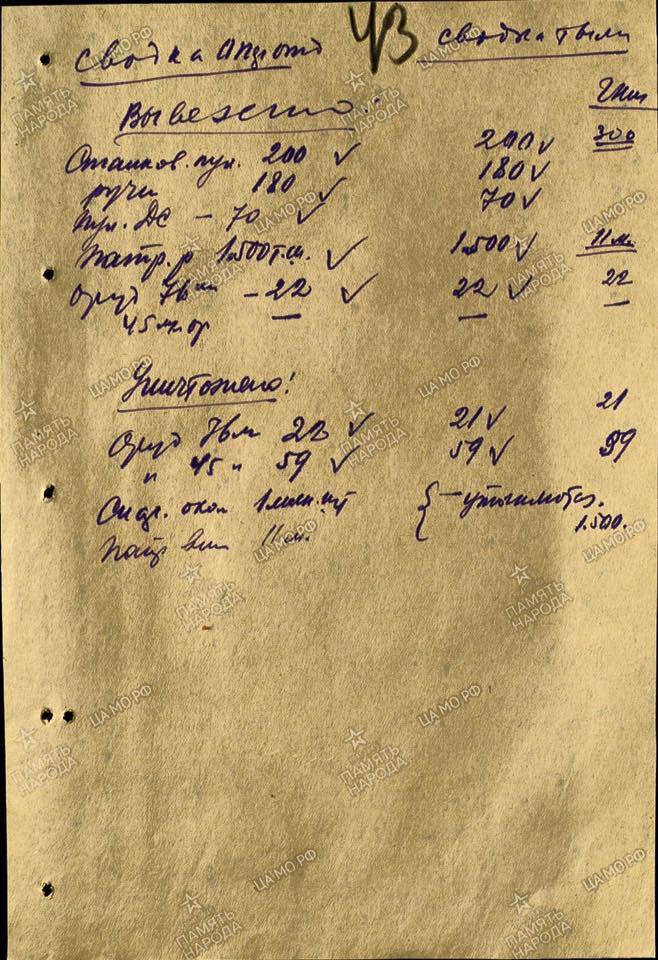 43
Сводка сводка тыла
Вывезено:
Станков. пул. 200 200 300
ручн 180 180
пул. ДС - 70 70
Патр. р 1.500 т.ш. 1.500 11 м.
Оруд 76 мм - 22 22 22
45 м. ор — — —
Уничтожено!
Оруд 76 м 22 21 21
" 45 " 59 59 59
Снар. окол 1 милн. шт { —
1.500.
патр вин 11 м.
ПАМЯТЬ НАРОДА
ЦАМО.РФ